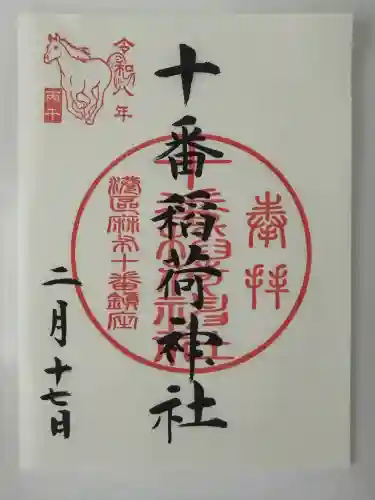 奉拝
十番稲荷神社
十番稲荷神社
港區麻布十番鎮座
令和八年
丙午
二月十七日